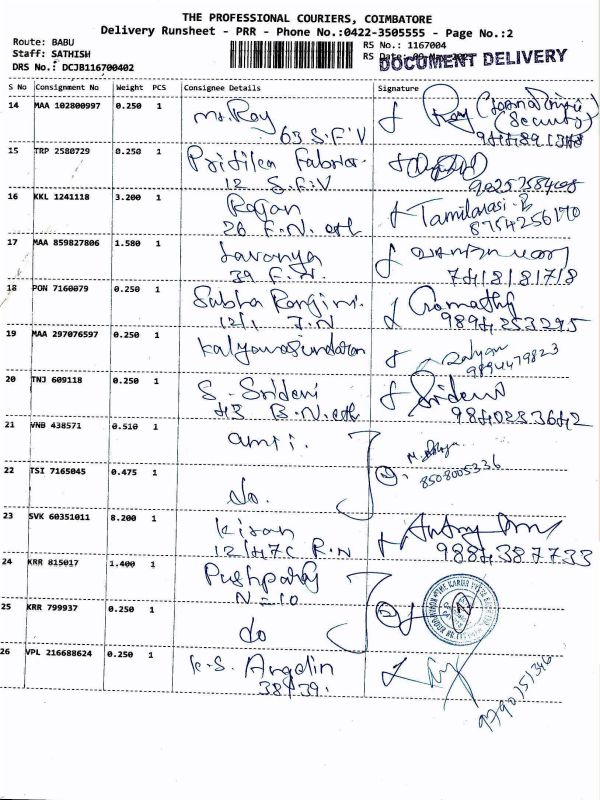 THE PROFESSIONAL COURIERS, COIMBATORE
Delivery Runsheet - PRR - Phone No.:0422-3505555 - Page No.:2
Route: BABU
Staff: SATHISH
DRS No.: DCJB116700402
RS No.: 1167004
RS Date:
DOCUMENT DELIVERY
S No Consignment No Weight PCS Consignee Details Signature
14 MAA 102800997 0.250 1 Mr. Roy
63 S.F.V
Roy
Security
15 TRP 2580729 0.250 1
12 S.F.V
9025758408
16 KKL 1241118 3.200 1 Rajan Tamilarasi.B
26 F.N. 8754256170
17 MAA 859827806 1.580 1 Lavanya
39 F.N. 7418181718
18 PON 7160079 0.250 1 Subha Ranjini. Gomathy
12/1 J.N 9894253295
19 MAA 297076597 0.250 1 Kalyanasundaram
9894479823
20 TNJ 609118 0.250 1 S. Sridevi Sridevi
43 B.N. 9840283642
21 VNB 438571 0.510 1
8508005336
22 TSI 7165045 0.475 1 do.
23 SVK 60351011 8.200 1 Kisan
12/47C R.N 9884387733
24 KRR 815017 1.400 1 Pushparaj
N-10
25 KRR 799937 0.250 1 do
26 VPL 216688624 0.250 1 K.S. Angelin
38/39.
9790151346